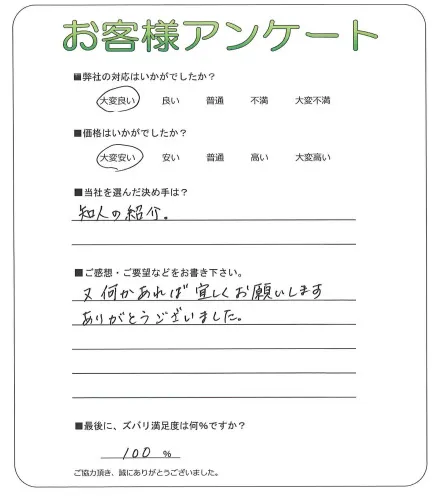 お客様アンケート
■弊社の対応はいかがでしたか？
大変良い 良い 普通 不満 大変不満
■価格はいかがでしたか？
大変安い 安い 普通 高い 大変高い
■当社を選んだ決め手は？
知人の紹介。
■ご感想・ご要望などをお書き下さい。
又何かあれば宜しくお願いします
ありがとうございました。
■最後に、ズバリ満足度は何%ですか？
100 %
ご協力頂き、誠にありがとうございました。